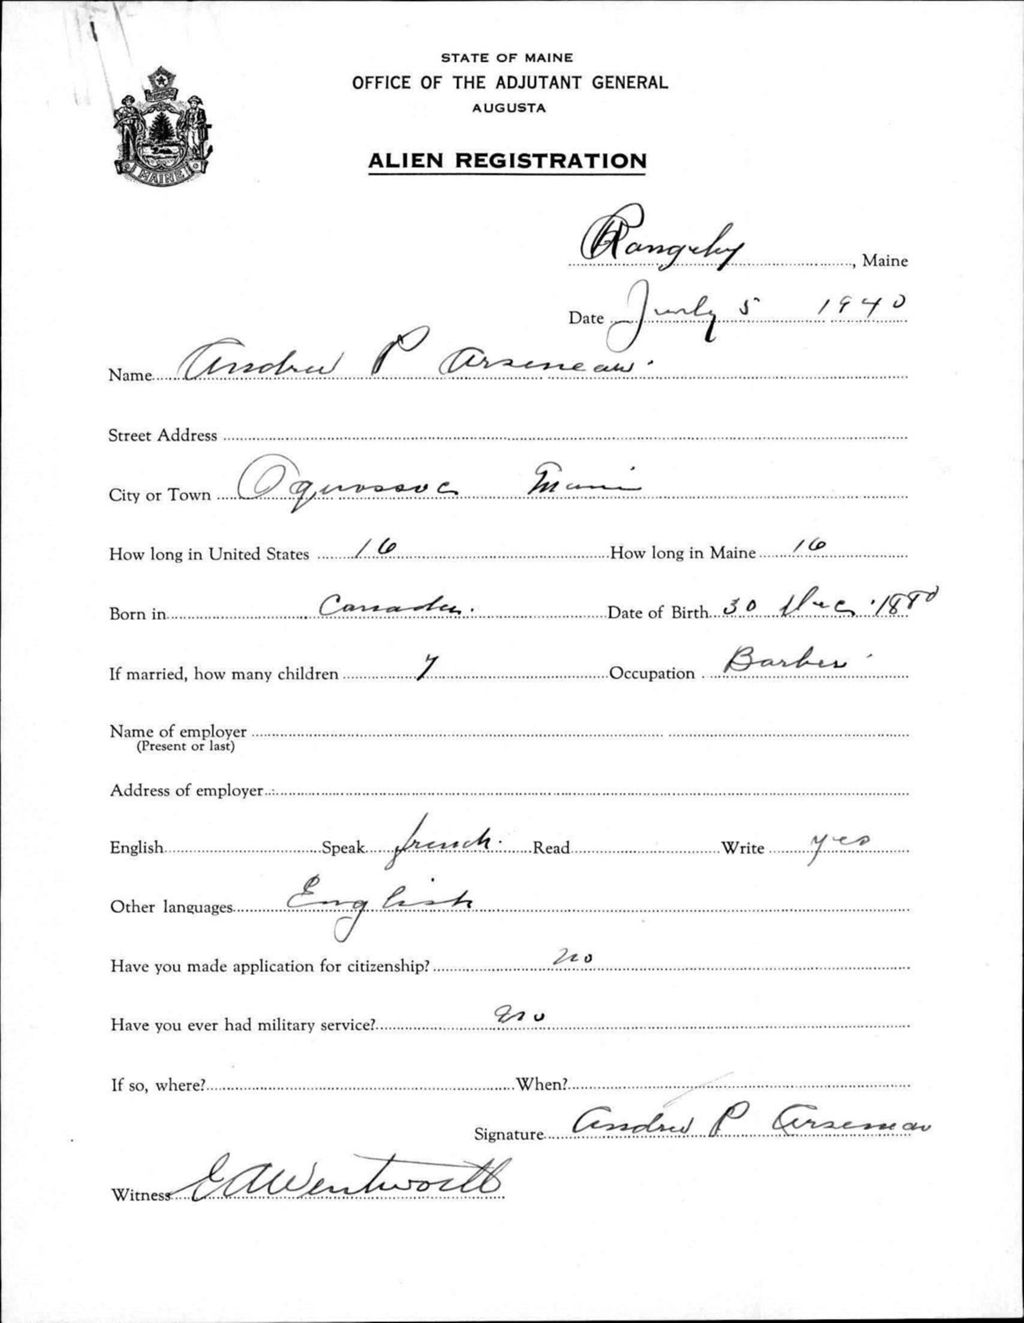 STATE OF MAINE
OFFICE OF THE ADJUTANT GENERAL
AUGUSTA
ALIEN REGISTRATION
MAINE
Rangeley, Maine
Date July 5 1940
Name Andrew P Arseneau
Street Address
City or Town Oquossoc Maine
How long in United States 16 How long in Maine 16
Born in Canada. Date of Birth 30 Dec. 1880
If married, how many children 7 Occupation Barber
Name of employer
(Present or last)
Address of employer
English Speak french. Read Write yes
Other languages English
Have you made application for citizenship? no
Have you ever had military service? no
If so, where? When?
Signature Andrew P Arseneau
Witness E A Wentworth